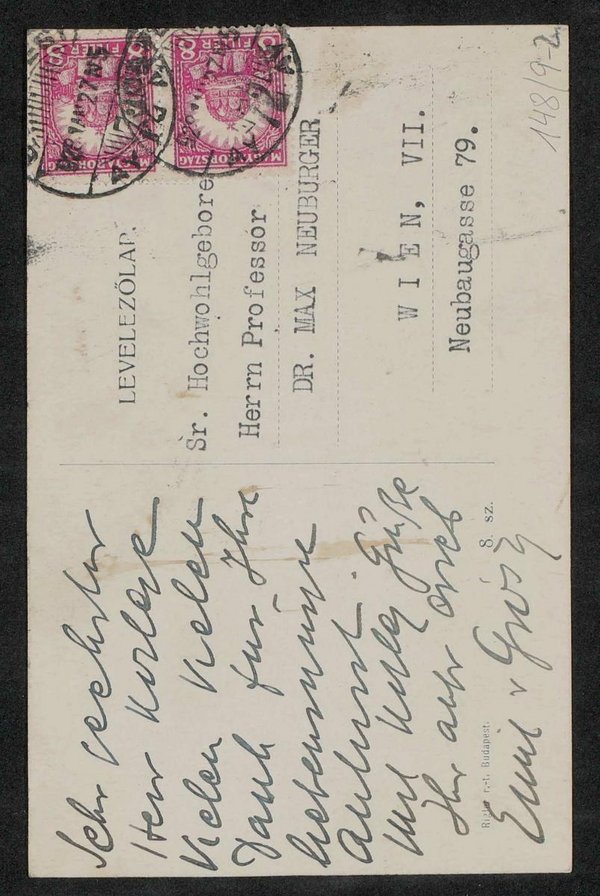 Sehr geehrter
Herr Kollege
Vielen vielen
Dank für Ihre
liebenswürdige
Antwort
mit kolleg Grüße
Ihr aufr
Emil v Grósz
Rigler r.-t. Budapest.
8. sz.
LEVELEZŐLAP.
Sr. Hochwohlgebore
Herrn Professor
DR. MAX NEUBURGER
WIEN, VII.
Neubaugasse 79.
148/9-2
8 FILLÉR 8
MAGYARORSZÁG
8 FILLÉR 8
MAGYARORSZÁG